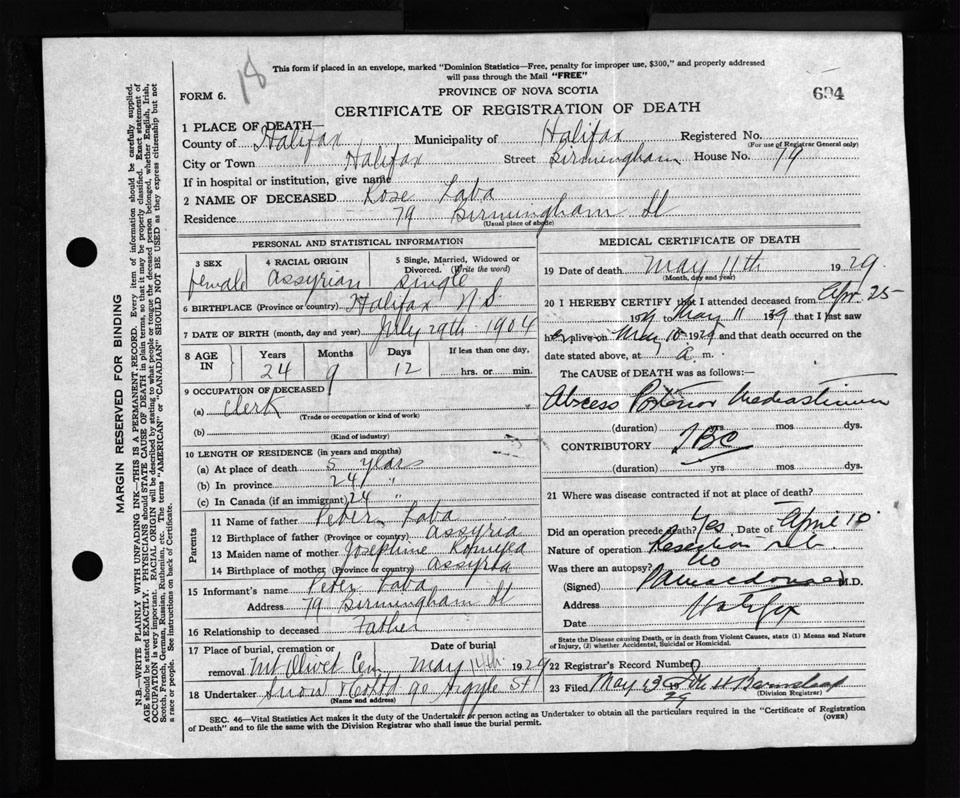 18
This form if placed in an envelope, marked "Dominion Statistics—Free, penalty for improper use, $300," and properly addressed
will pass through the Mail "FREE"
FORM 6.
PROVINCE OF NOVA SCOTIA
694
CERTIFICATE OF REGISTRATION OF DEATH
1 PLACE OF DEATH—
County of Halifax Municipality of Halifax Registered No.
(For use of Registrar General only)
City or Town Halifax Street Birmingham House No. 79
If in hospital or institution, give name
2 NAME OF DECEASED Rose Laba
Residence 79 Birmingham St
(Usual place of abode)
PERSONAL AND STATISTICAL INFORMATION
3 SEX female
4 RACIAL ORIGIN Assyrian
5 Single, Married, Widowed or Divorced. (Write the word) Single
6 BIRTHPLACE (Province or country) Halifax N S.
7 DATE OF BIRTH (month, day and year) July 29th 1904
8 AGE IN Years Months Days If less than one day,
24 9 12 hrs. or min.
9 OCCUPATION OF DECEASED
(a) Clerk
(Trade or occupation or kind of work)
(b)
(Kind of industry)
10 LENGTH OF RESIDENCE (in years and months)
(a) At place of death 5 years
(b) In province 24 "
(c) In Canada (if an immigrant) 24 "
Parents
11 Name of father Peter Laba
12 Birthplace of father (Province or country) Assyria
13 Maiden name of mother Josephine
14 Birthplace of mother (Province or country) Assyria
15 Informant's name Peter Laba
Address 79 Birmingham St
16 Relationship to deceased Father
17 Place of burial, cremation or removal Mt Olivet Cem
Date of burial May 14th 1929
18 Undertaker Snow & Co Ltd 90 Argyle St
(Name and address)
MEDICAL CERTIFICATE OF DEATH
19 Date of death May 11th 1929
(Month, day and year)
20 I HEREBY CERTIFY that I attended deceased from Apr. 25
1929 to May 11 1929 that I last saw
her alive on May 10 1929 and that death occurred on the
date stated above, at a. m.
The CAUSE of DEATH was as follows:—
Abscess Posterior Mediastinum
(duration) yrs mos dys.
CONTRIBUTORY TBC
(duration) yrs mos dys.
21 Where was disease contracted if not at place of death?
Did an operation precede death? Yes Date of April 10.
Nature of operation Resection rib
Was there an autopsy? No
(Signed) Macdonald M.D.
Address Halifax
Date
State the Disease causing Death, or in death from Violent Causes, state (1) Means and Nature
of Injury, (2) whether Accidental, Suicidal or Homicidal.
22 Registrar's Record Number
23 Filed May 13 29
(Division Registrar)
SEC. 46—Vital Statistics Act makes it the duty of the Undertaker or person acting as Undertaker to obtain all the particulars required in the "Certificate of Registration
of Death" and to file the same with the Division Registrar who shall issue the burial permit.
(OVER)
MARGIN RESERVED FOR BINDING
N.B.—WRITE PLAINLY WITH UNFADING INK—THIS IS A PERMANENT RECORD. Every item of information should be carefully supplied.
AGE should be stated EXACTLY. PHYSICIANS should STATE CAUSE OF DEATH in plain terms, so that it may be properly classified. Exact statement of
OCCUPATION is very important. RACIAL ORIGIN will be described by stating to what people or tongue the deceased person belonged, whether English, Irish,
Scotch, French, German, Russian, Ruthenian, etc. The terms "AMERICAN" or "CANADIAN" SHOULD NOT BE USED as they express citizenship but not
a race or people. See instructions on back of Certificate.